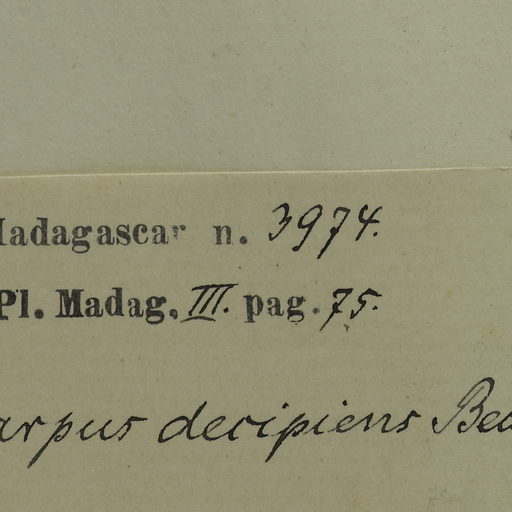 Madagascar n. 3974.
Pl. Madag. III. pag. 75.
arpus decipiens Bec